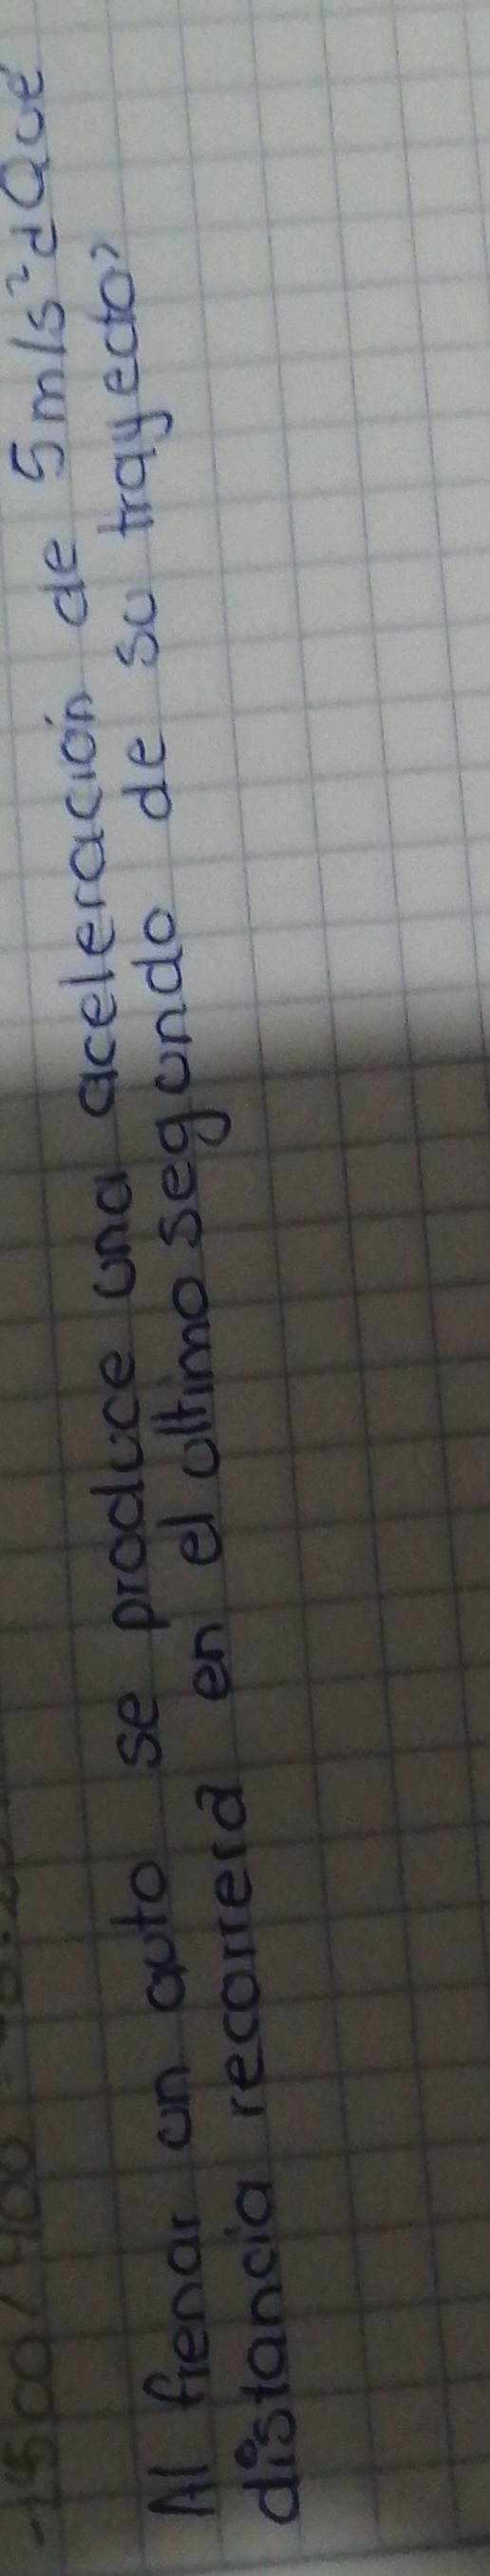 Al frenar un auto se produce una aceleración de 5m/s² ¿Qué
distancia recorrerá en el ultimo segundo de su trayecto?